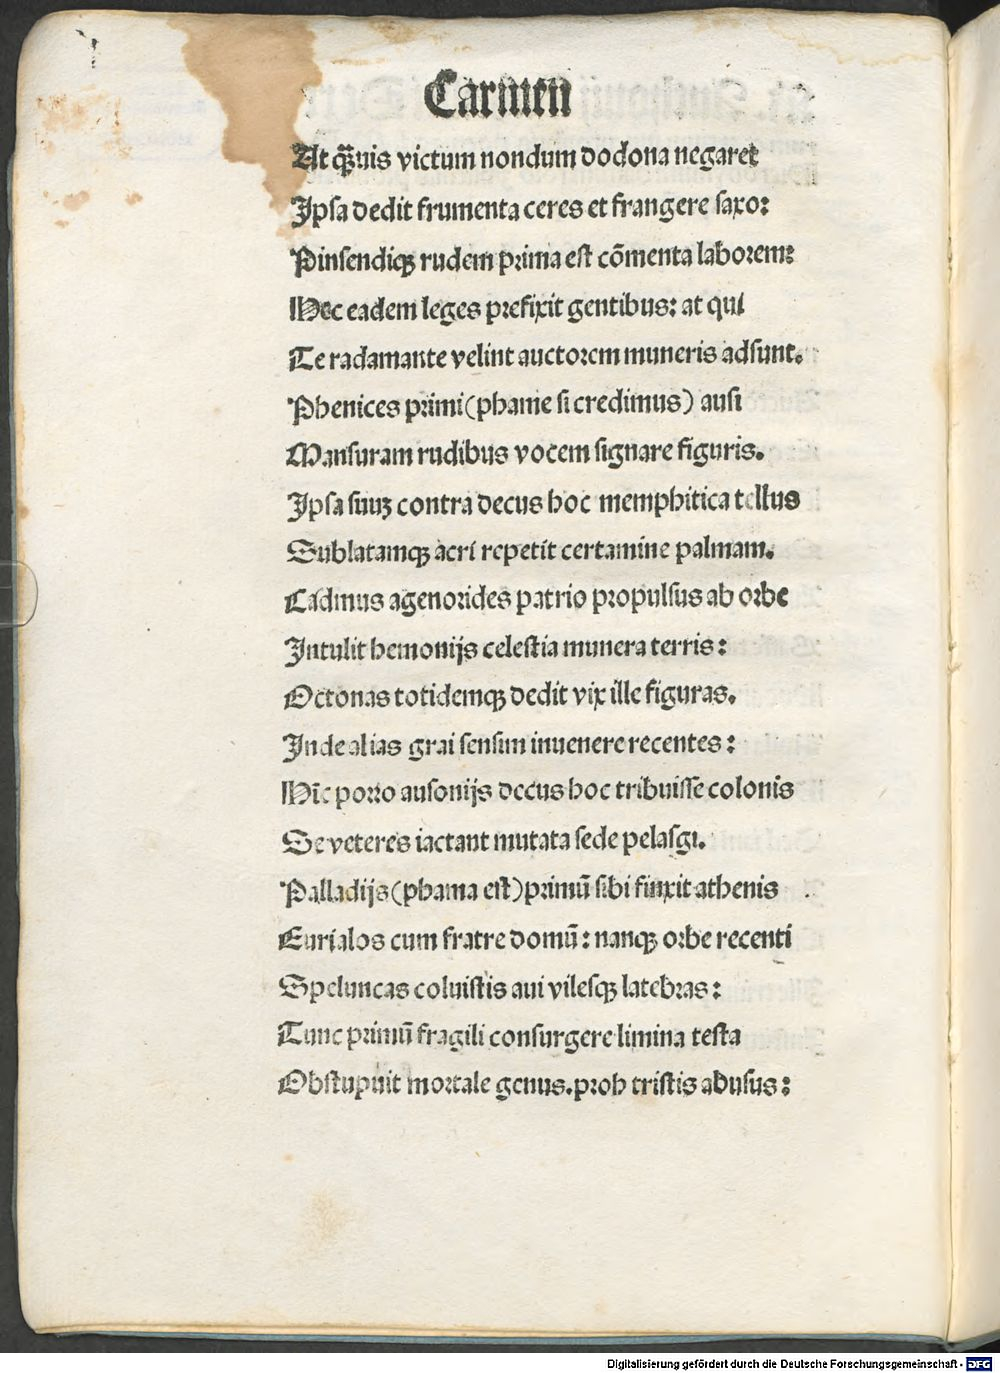 Carmen
At q̃uis victum nondum dodona negaret
Ipsa dedit frumenta ceres et frangere saxo:
Pinsendiqꝫ rudem prima est cõmenta laborem:
Hec eadem leges prefixit gentibus: at qui
Te radamante velint auctorem muneris adsunt.
Phenices primi (phame si credimus) ausi
Mansuram rudibus vocem signare figuris.
Ipsa suuꝫ contra decus hoc memphitica tellus
Sublatamqꝫ acri repetit certamine palmam.
Cadmus agenorides patrio propulsus ab orbe
Intulit hemonijs celestia munera terris:
Octonas totidemqꝫ dedit vix ille figuras.
Inde alias grai sensim inuenere recentes:
Hĩc porro ausonijs decus hoc tribuisse colonis
Se veteres iactant mutata sede pelasgi.
Palladijs (phama est) primũ sibi finxit athenis
Eurialos cum fratre domũ: nanqꝫ orbe recenti
Speluncas coluistis aui vilesqꝫ latebras:
Tunc primũ fragili consurgere limina testa
Obstupuit mortale genus. proh tristis abusus:
Digitalisierung gefördert durch die Deutsche Forschungsgemeinschaft - DFG